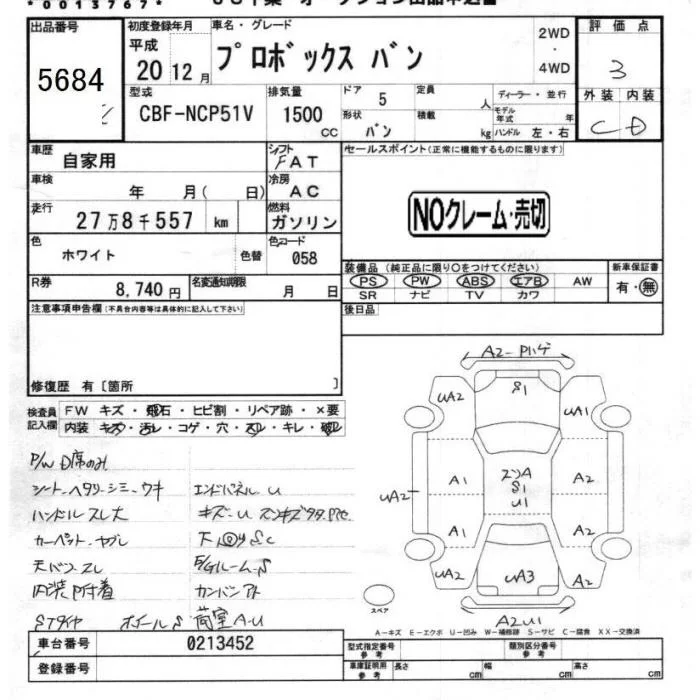 *0013767*
出品番号 初度登録年月 車名・グレード 2WD・4WD 評価点
5684 平成20 12月 プロボックス バン 3
型式 CBF-NCP51V 排気量 1500 CC ドア 5 定員 人 ディーラー・並行 外装 内装
形状 バン 積載 kg モデル年式 年 ハンドル 左・右 C D
車歴 自家用 シフト FAT セールスポイント(正常に機能するものに限ります)
車検 年 月( 日) 冷房 AC
走行 27万8千557 km 燃料 ガソリン NOクレーム・売切
色 ホワイト 色替 色コード 058
装備品(純正品に限り○をつけてください) 新車保証書
R券 8,740円 名変通知期限 月 日 PS PW ABS エアB AW 有・無
SR ナビ TV カワ
注意事項申告欄(不具合内容等は具体的に記入して下さい) 後日品
修復歴 有〔箇所 〕
検査員記入欄 FW キズ・飛石・ヒビ割・リペア跡・×要
内装 キズ・汚レ・コゲ・穴・スレ・キレ・破レ
A2-Pハゲ
UA2 S1 UA1
A1 スンA S1 U1 A2
UA2
A1 A2
UA2 UA3 A2
A2U1
スペア
P/W D席のみ
シート、ヘタリ、シミ、ウキ エンドパネルU
ハンドルスレ大
カーペット、ヤブレ
天バンスレ E/Gルーム、S
内装P付着
STタイヤ ホイールS 荷室A-U
A-キズ E-エクボ U-凹み W-補修跡 S-サビ C-腐食 XX-交換済
車台番号 0213452 型式指定番号 参考 類別区分番号 参考
登録番号 車庫証明用 参考 長さ cm 幅 cm 高さ cm